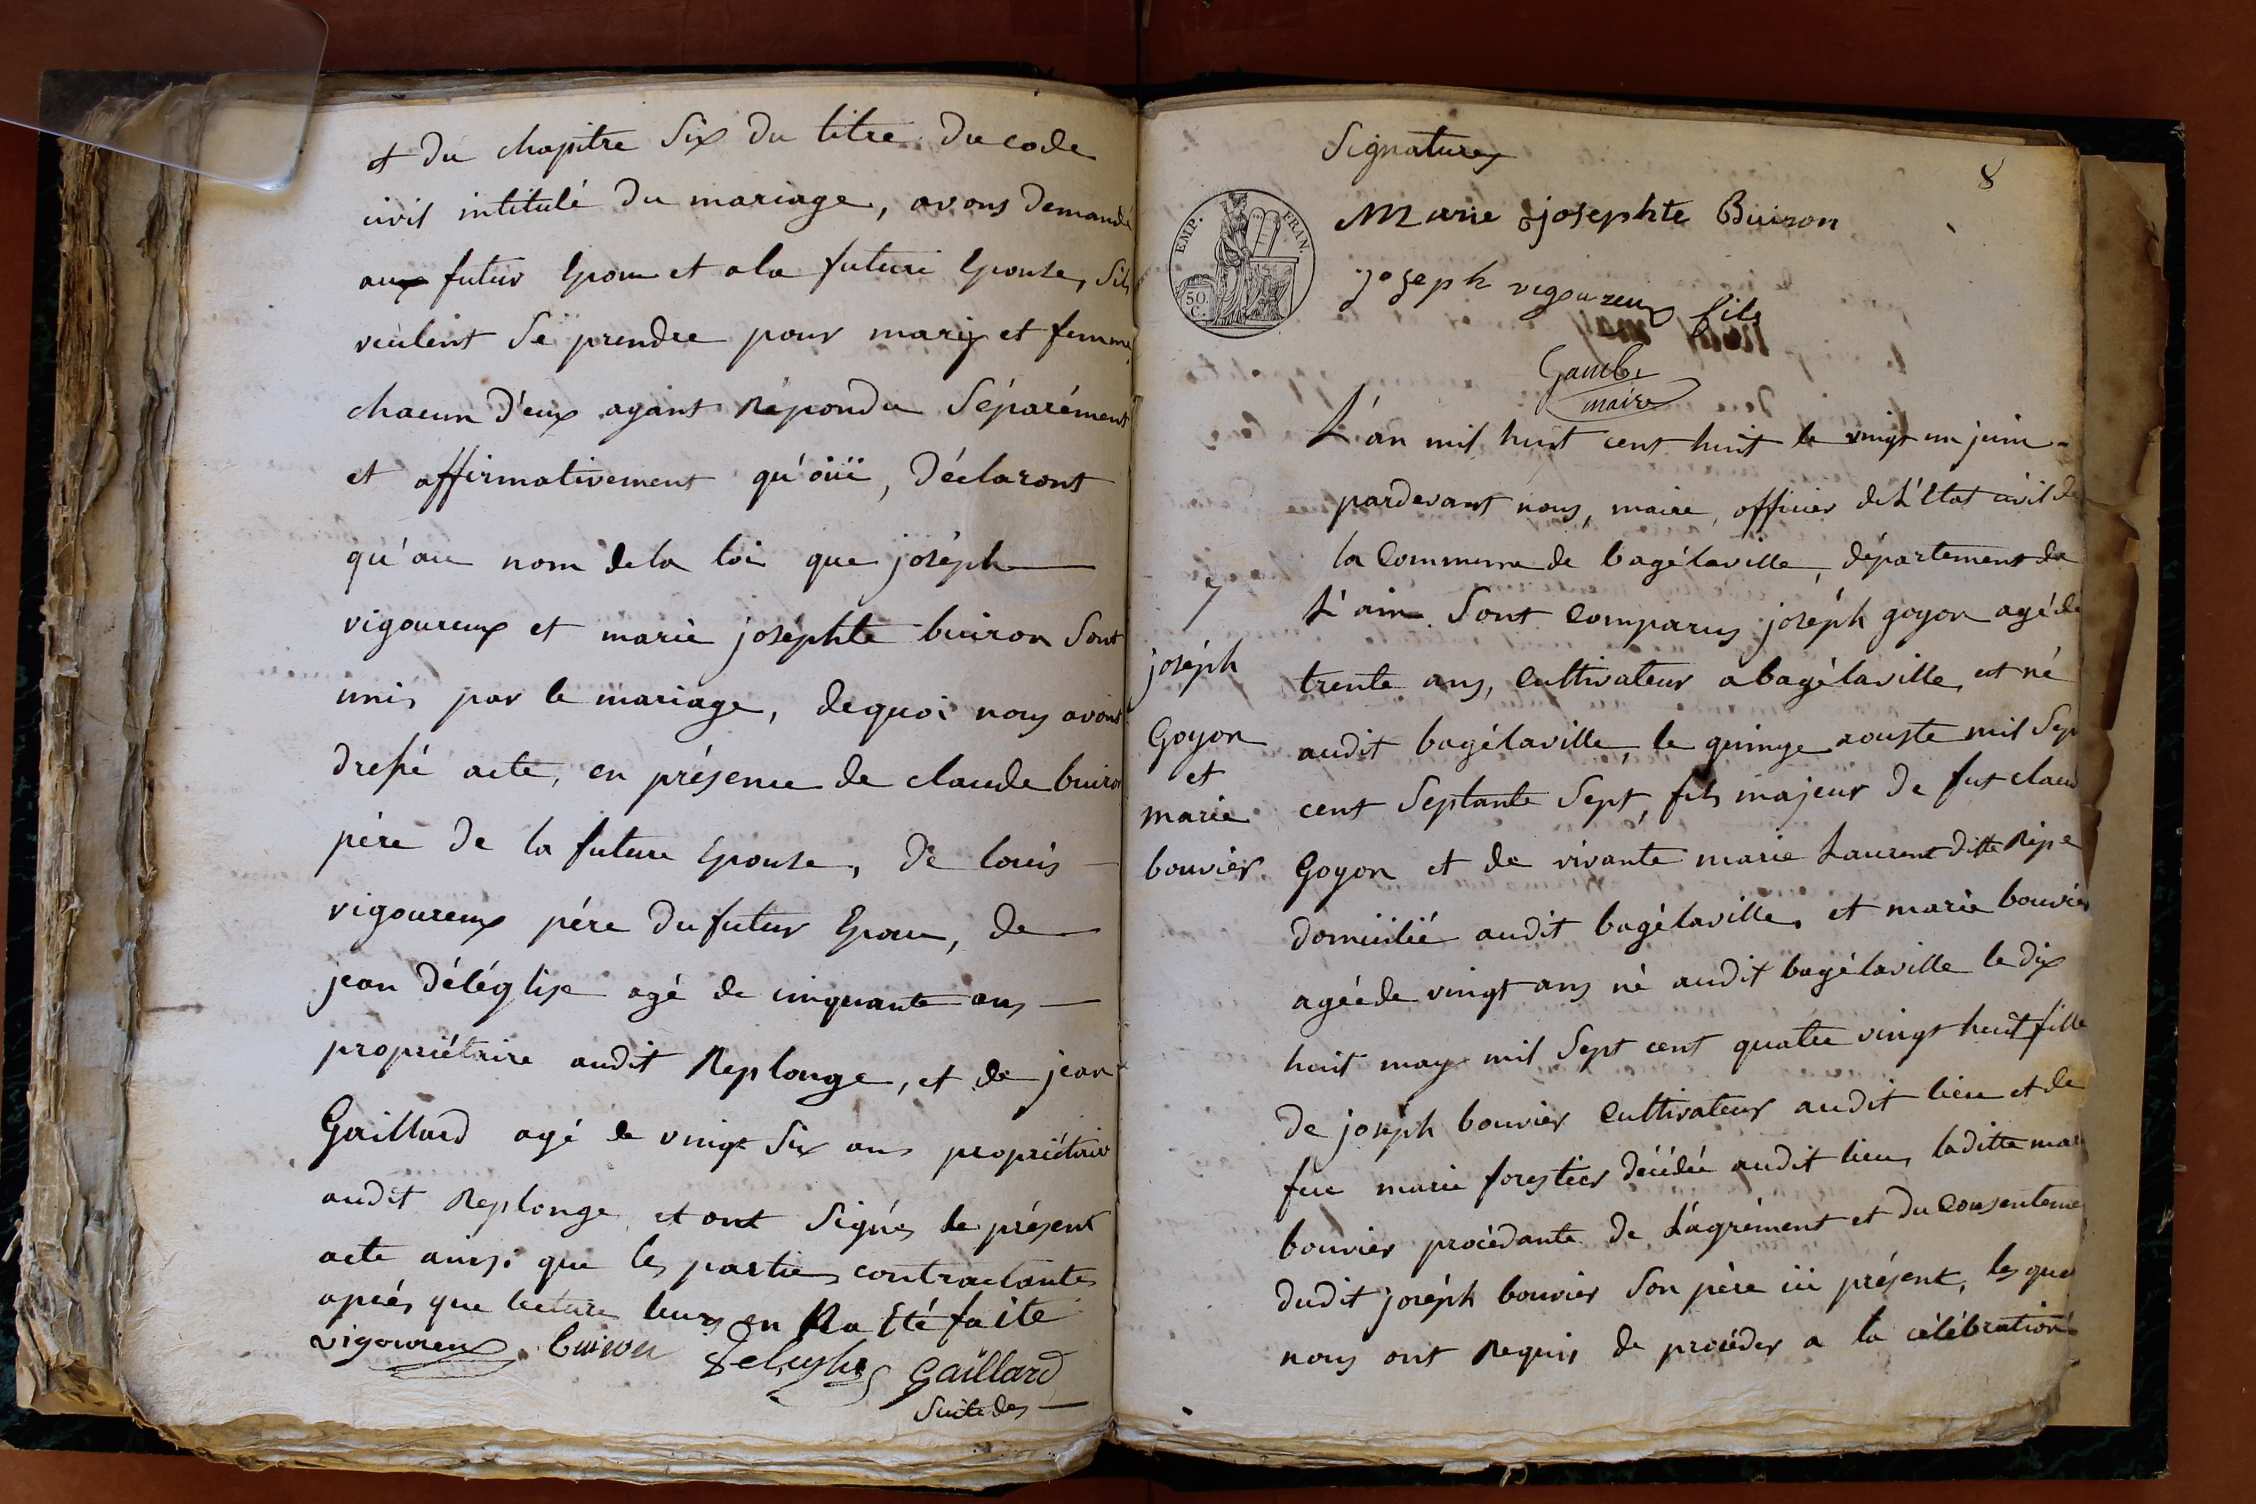 et du chapitre Six du titre du code
civil intitulé du mariage, avons demandé
aux futur Epoux et a la future Epouse, S'ils
veulent Se prendre pour mary et femme,
chacun d'eux ayant Répondu Séparément
et affirmativement qu'oüi, déclarons
qu'au nom de la loi que joséph
vigoureux et marie joséphte buiron Sont
unis par le mariage, de quoi nous avons
dressé acte, en présence de claude buiron
père de la future Epouse, de louis
vigoureux pére du futur Epoux, de
jean déléglise agé de cinquante ans
propriétaire audit Replonge, et de jean
Gaillard agé de vingt Six ans propriétaire
audit Replonge, et ont Signés le présent
acte ainsi que les parties contractantes
aprés que lecture leurs en a Eté faite
vigoureux buiron Gaillard
Suite des
Signatures
8
EMP. FRAN.
50 C.
Marie josephte Buiron
joseph vigoureux fils
Gambe
maire
L'an mil huit cent huit le vingt un juin
pardevant nous, maire, officier de L'Etat civil de
la Commune de bagélaville, département de
L'ain Sont Comparus joséph goyon agé de
trente ans, Cultivateur a bagélaville, et né
audit bagélaville, le quinze aouste mil Sept
cent Septante Sept, fils majeur de fut claude
Goyon et de vivante marie Laurent ditte Ripe
domicilié audit bagélaville, et marie bouvier
agée de vingt ans né audit bagélaville le dix
huit may mil Sept cent quatre vingt huit, fille
de joséph bouvier Cultivateur audit lieu et de
fue marie forestier décédée audit lieu, laditte marie
bouvier procédante de L'agrément et du Consentement
dudit joséph bouvier Son père ici présent, les quels
nous ont Requis de procéder a la célébration
7
joséph
Goyon
et
marie
bouvier